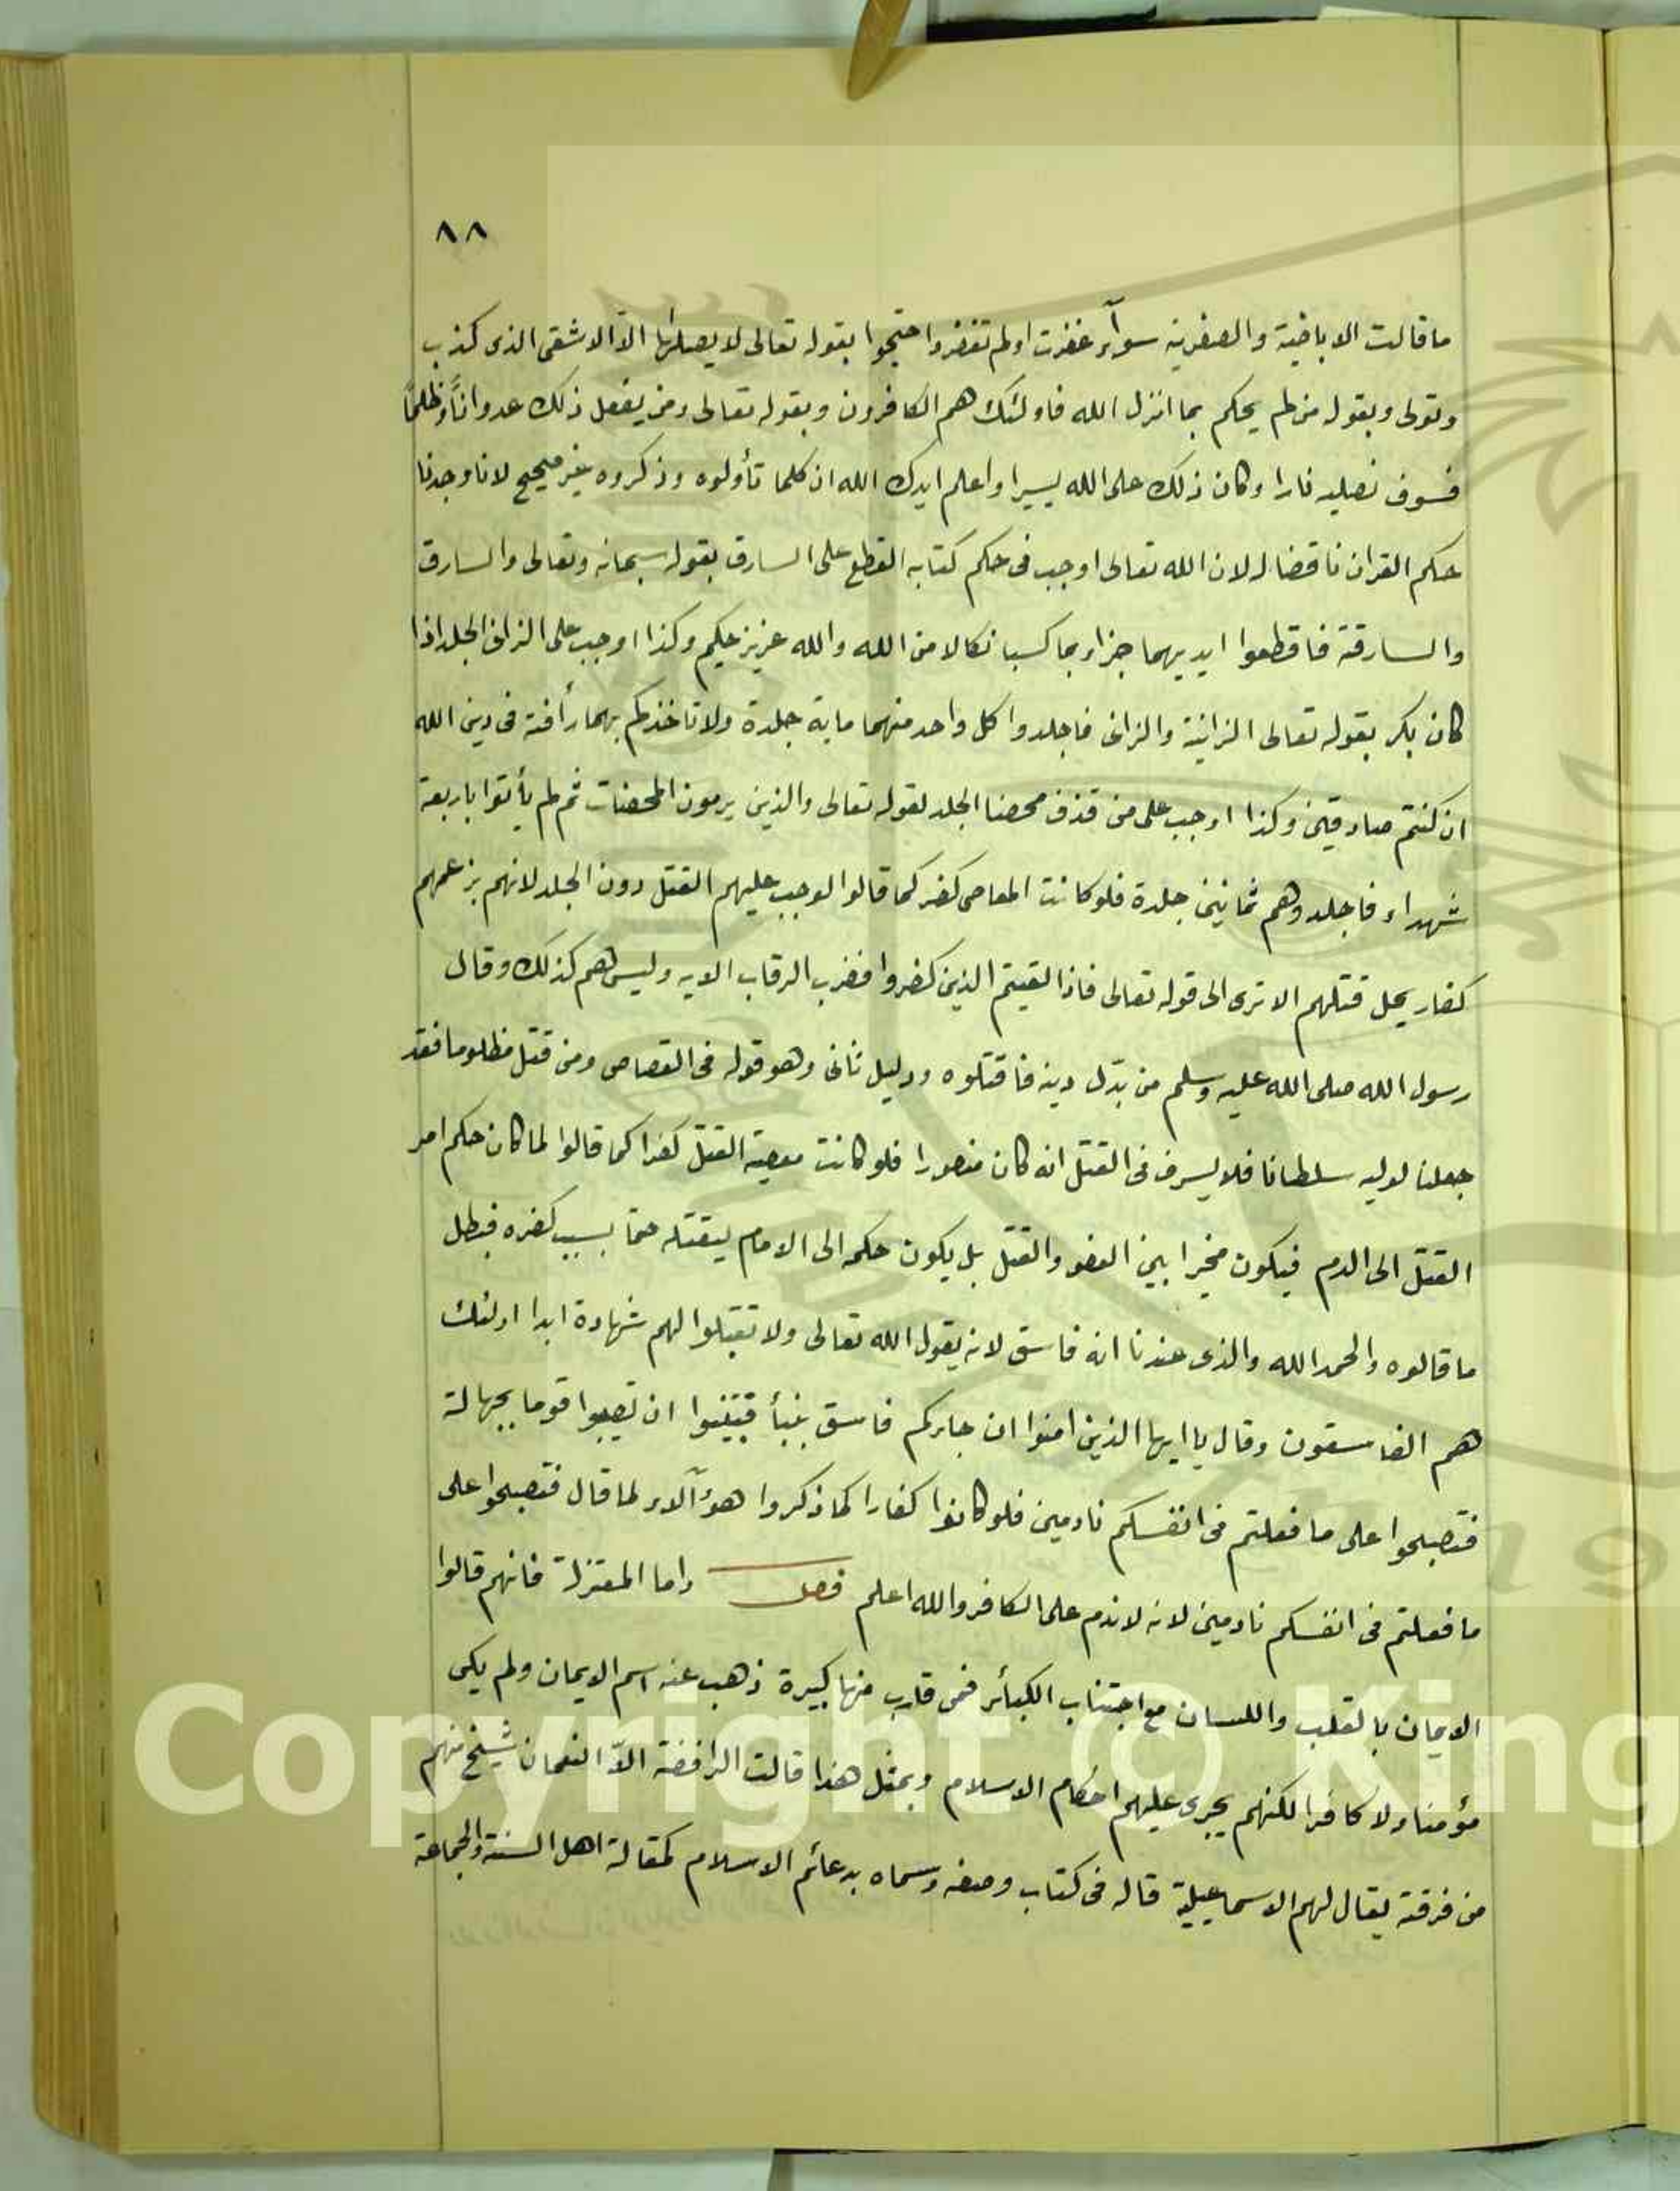 ٨٨
ما قالت الاباضية والصفرية سوآء غفرت اولم تغفر واحتجوا بقوله تعالى لا يصلها الّا الاشقى الذى كذب
وتولى وبقوله من لم يحكم بما انزل الله فاولئك هم الكافرون وبقوله تعالى ومن يفعل ذلك عدوانًا وظلمًا
فسوف نصليه نارا وكان ذلك على الله يسيرا واعلم ايدك الله ان كلما تأولوه وذكروه غير صحيح لانا وجدنا
حكم القران ناقضا له لان الله تعالى اوجب فى حكم كتابه القطع على السارق بقوله سبحانه وتعالى والسارق
والسارقة فاقطعوا ايديهما جزاء بما كسبا نكالا من الله والله عزيز حكيم وكذا اوجب على الزانى الجلد اذا
كان بكر بقوله تعالى الزانية والزانى فاجلدوا كل واحد منهما ماية جلدة ولا تاخذكم بهما رأفة فى دين الله
ان كنتم صادقين وكذا اوجب على من قذف محصنا الجلد لقوله تعالى والذين يرمون المحصنات ثم لم يأتوا باربعة
شهداء فاجلدوهم ثمانين جلدة فلو كانت المعاصى كفر كما قالوا لوجب عليهم القتل دون الجلد لانهم بزعمهم
كفار يحل قتلهم الا ترى الى قوله تعالى فاذا لقيتم الذين كفروا فضرب الرقاب الايه وليس هم كذلك وقال
رسول الله صلى الله عليه وسلم من بدّل دينه فاقتلوه ودليل ثانى وهو قوله فى القصاص ومن قتل مظلوما فقد
جعلنا لوليه سلطانا فلا يسرف فى القتل انه كان منصورا فلو كانت معصية القتل كفرا كما قالوا لما كان حكم امر
القتل الى الدم فيكون مخيرا بين العفو والقتل بل يكون حكمه الى الامام ليقتله حتما بسبب كفره فبطل
ما قالوه والحمد الله والذى عندنا انه فاسق لانه يقول الله تعالى ولا تقبلوا لهم شهادة ابدا اولئك
هم الفاسقون وقال يا ايها الذين امنوا ان جاءكم فاسق بنبأ فتبينوا ان تصيبوا قوما بجهالة
فتصبحوا على ما فعلتم فى انفسكم نادمين فلو كانوا كفارا كما ذكروا هؤلآء لما قال فتصبحوا على
ما فعلتم فى انفسكم نادمين لانه لا ندم على الكافر والله اعلم فصل واما المعتزلة فانهم قالوا
الايمان بالقلب واللسان مع اجتناب الكبائر فمن قارب منها كبيرة ذهب عنه اسم الايمان ولم يكن
مؤمنا ولا كافرا لكنهم يجرى عليهم احكام الاسلام وبمثل هذا قالت الرافضة الّا النعمان شيخ منهم
من فرقة يقال لهم الاسماعيلية قاله فى كتاب وصفه وسماه بدعائم الاسلام كمقالة اهل السنة والجماعة
Copyright © King